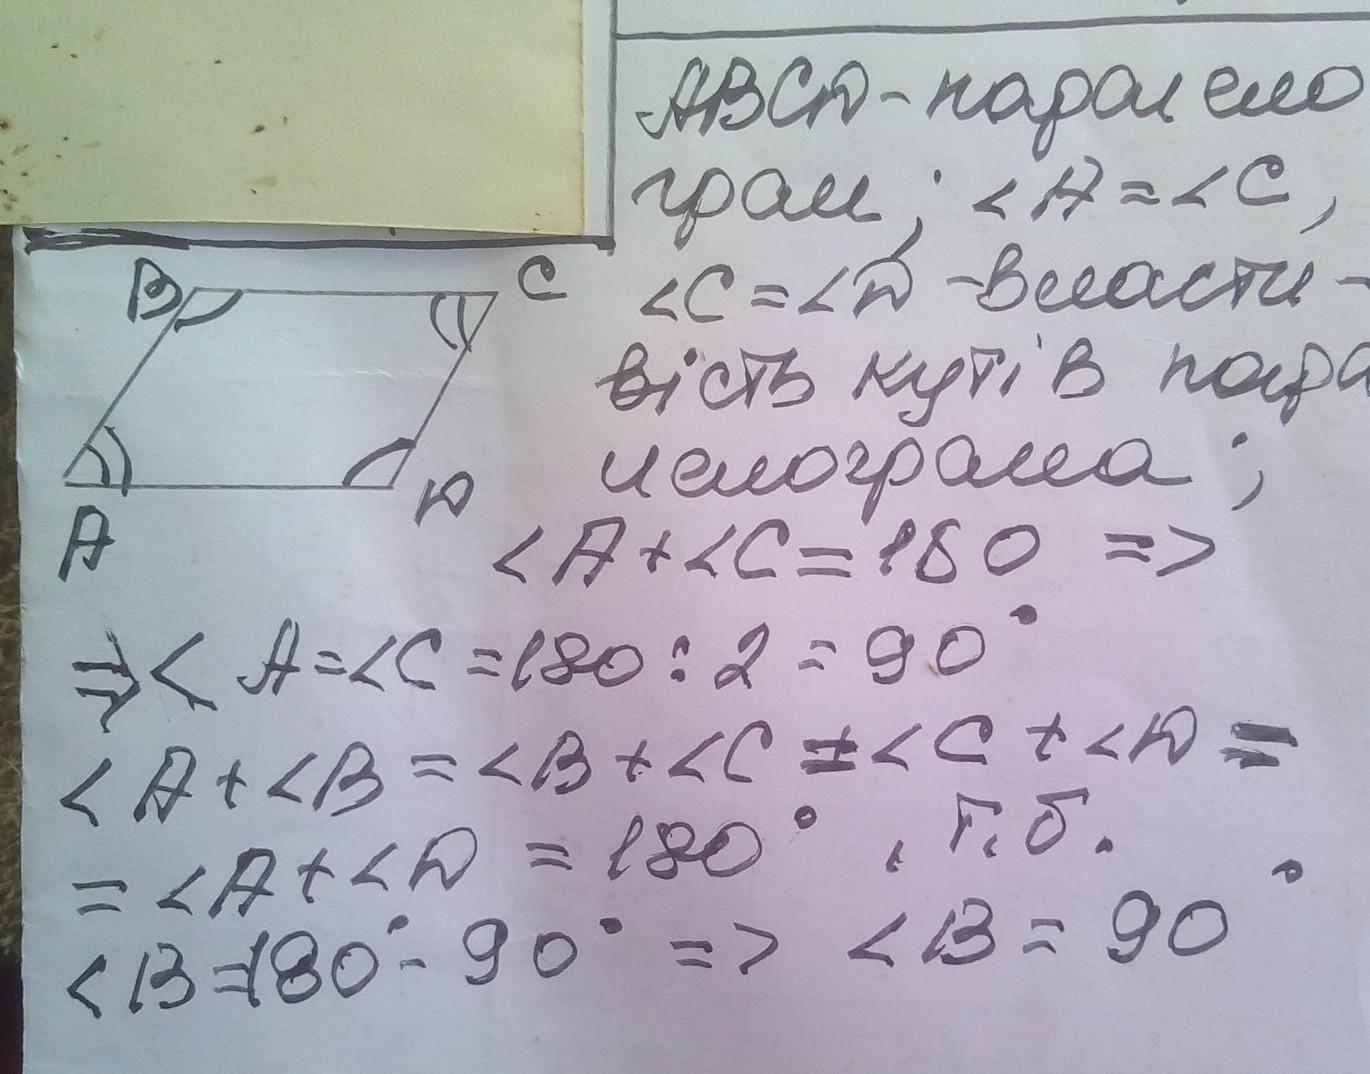 ABCD - паралело
грам; <A = <C,
<C = <D - власти -
B
C
вість кутів пара
лелограма;
A
D
<A + <C = 180 =>
=> < A = <C = 180 : 2 = 90°
<A + <B = <B + <C = <C + <D =
= <A + <D = 180°, т.б.
<B = 180° - 90° => <B = 90°